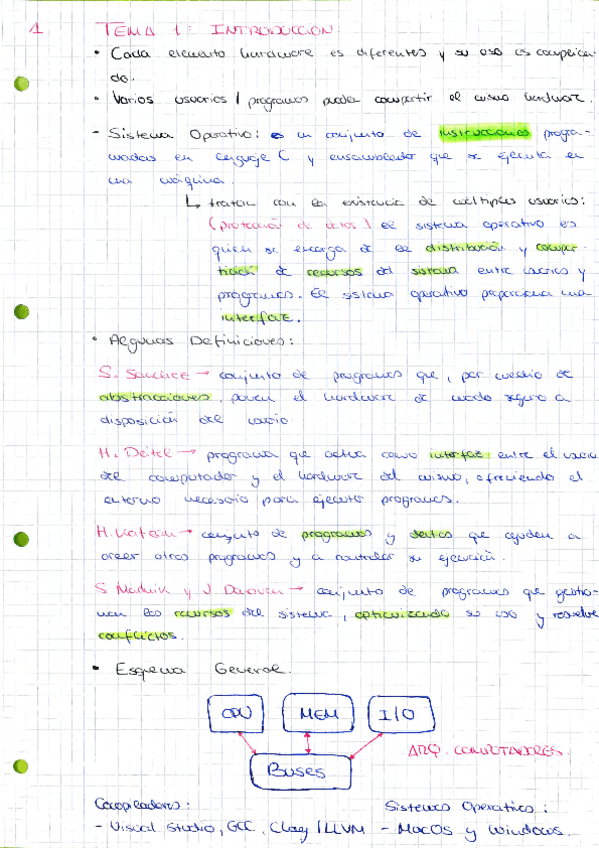 1 TEMA 1: INTRODUCCIÓN
• Cada elemento hardware es diferentes y su uso es complica-
do.
• Varios usuarios / programas pueden compartir el mismo hardware.
- Sistema Operativo: es un conjunto de instrucciones progra-
madas en lenguaje C y ensamblador que se ejecuta en
una máquina.
↳ tratan con la existencia de múltiples usuarios:
(protección de datos) el sistema operativo es
quien se encarga de la distribución y compar-
tición de recursos del sistema entre usuarios y
programas. El sistema operativo proporciona una
interfaz.
• Algunas Definiciones:
S. Sánchez → conjunto de programas que, por medio de
abstracciones, ponen el hardware de modo seguro a
disposición del usuario.
H. Deitel → programa que actúa como interfaz entre el usuario
del computador y el hardware del mismo, ofreciendo el
entorno necesario para ejecutar programas.
H. Katzan → conjunto de programas y datos que ayudan a
crear otros programas y a controlar su ejecución.
S. Madnik y J. Donovan → conjunto de programas que gestio-
nan los recursos del sistema, optimizando su uso y resolve
conflictos.
• Esquema General.
CPU MEM I/O
ARQ. COMPUTADORES.
Buses
Compiladores: Sistemas Operativos:
- Visual Studio, GCC, Clang/LLVM - MacOS y Windows.